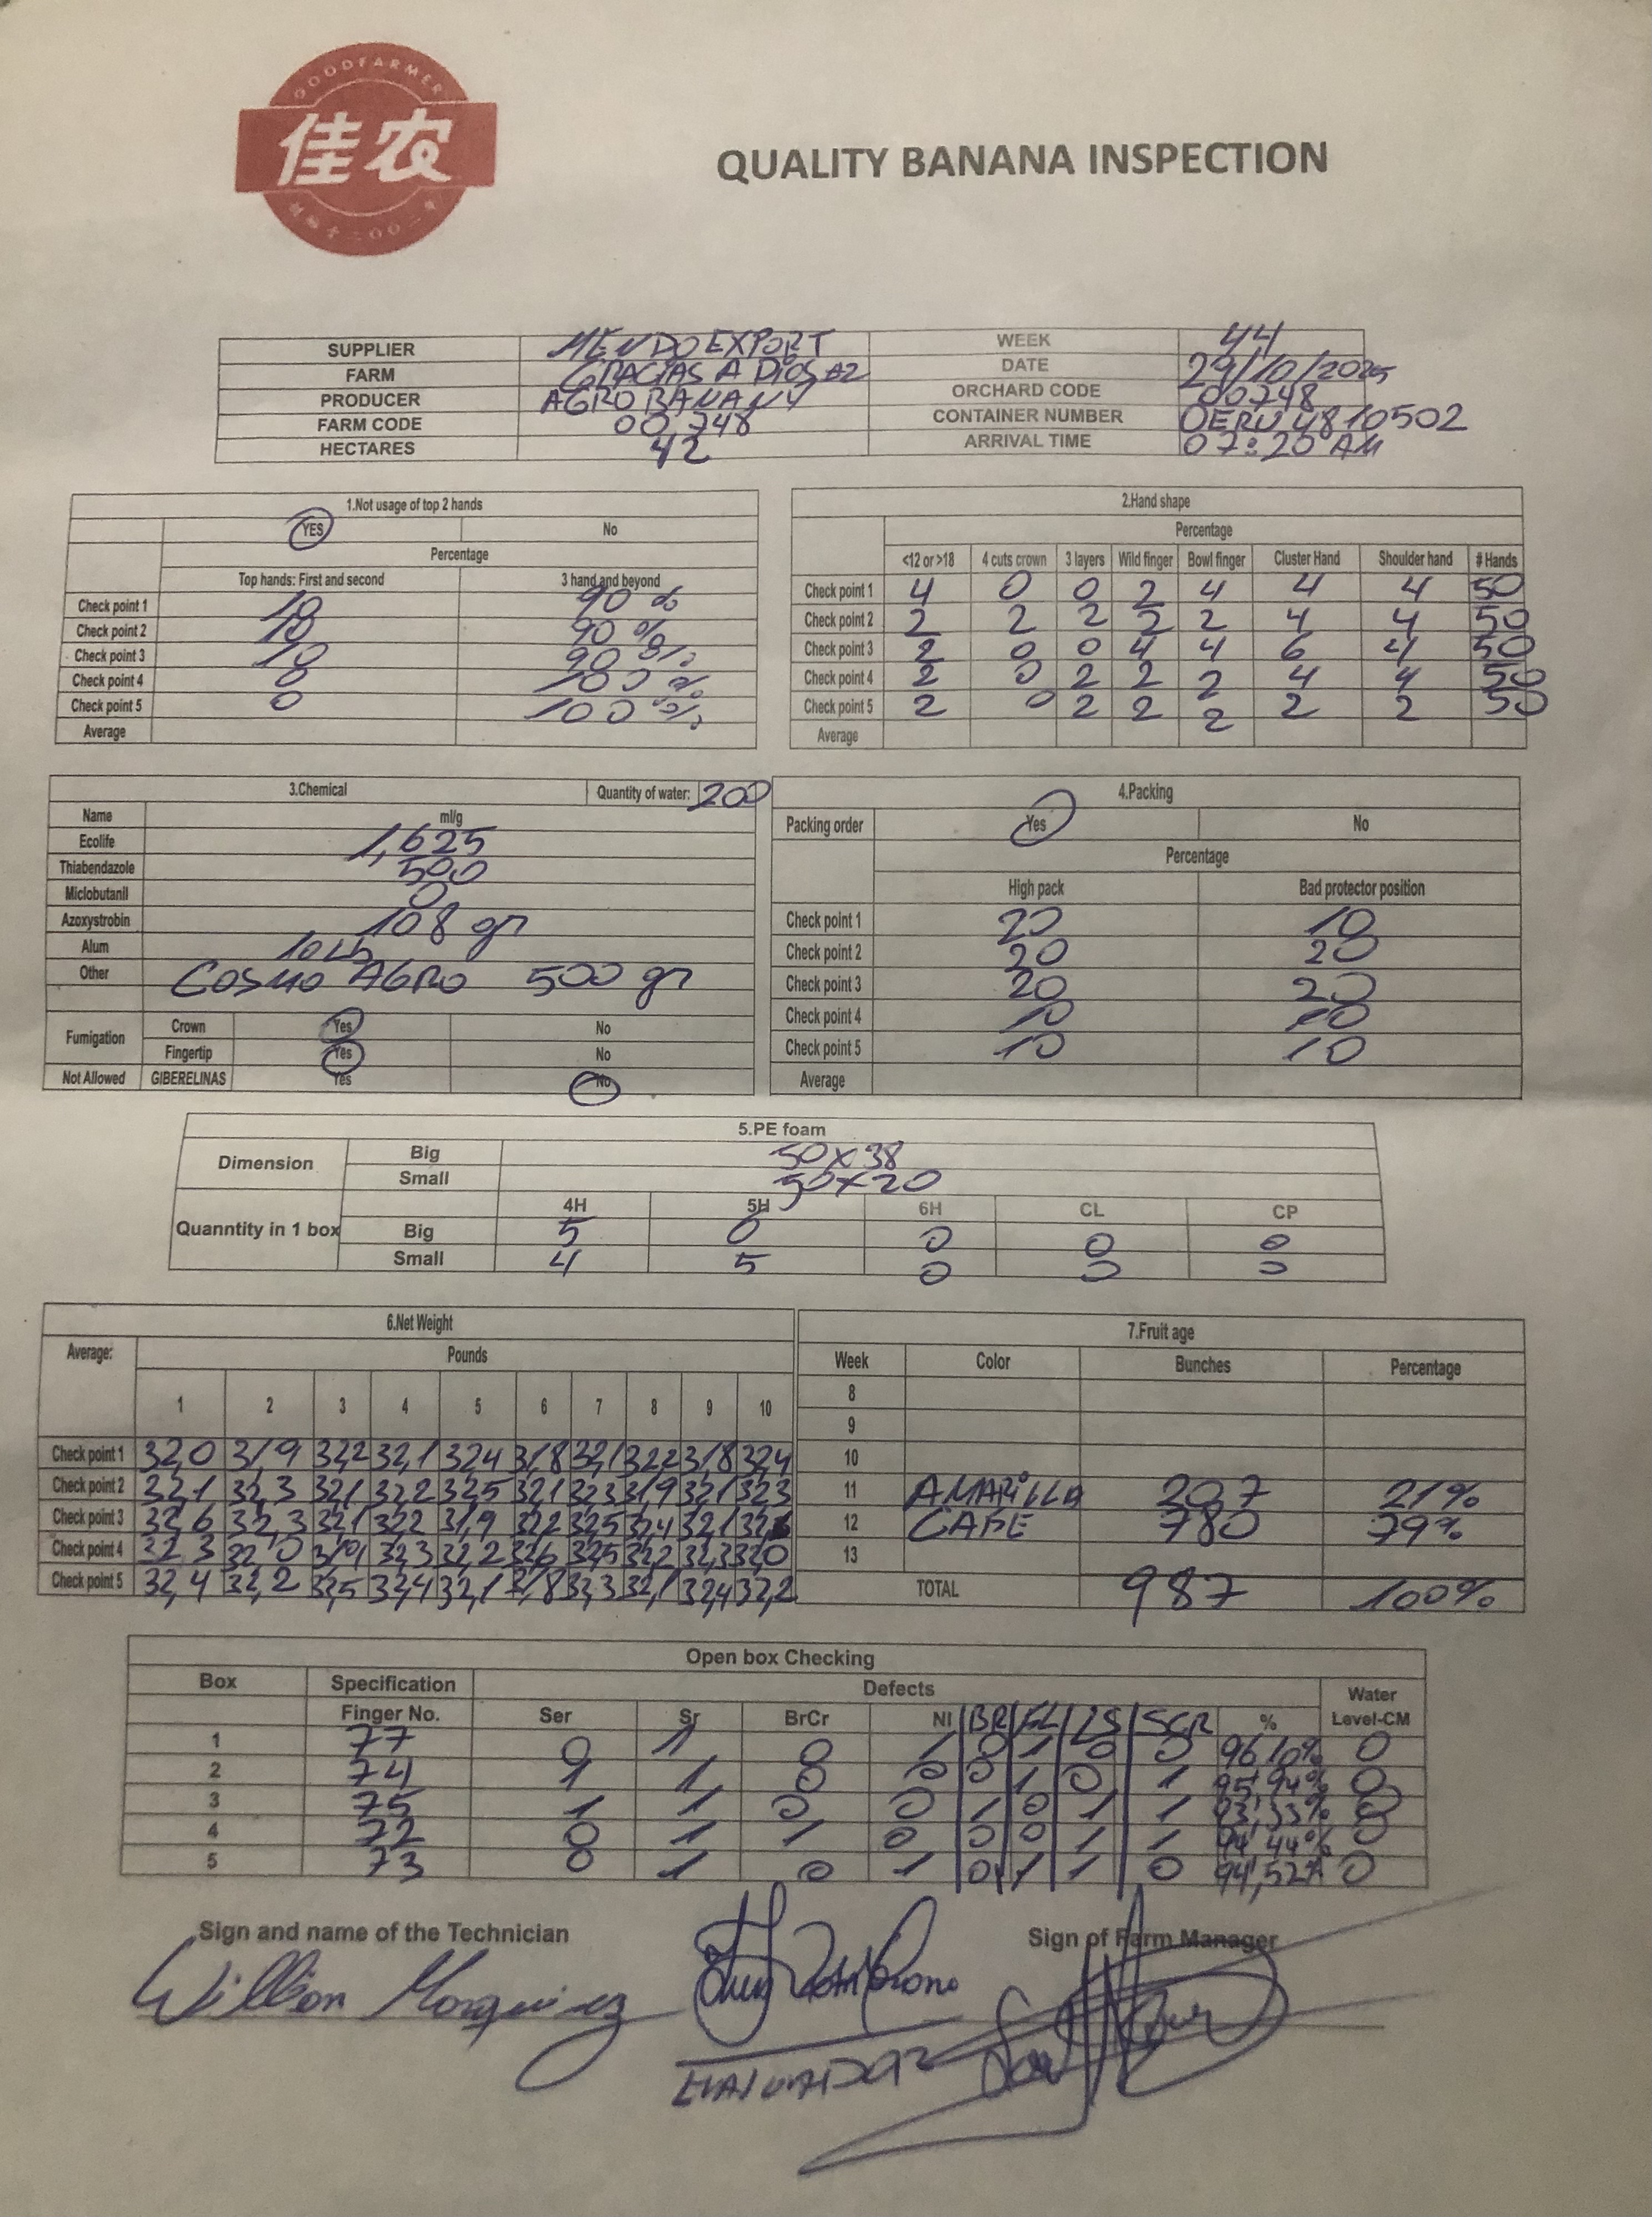 GOODFARMER
佳农
QUALITY BANANA INSPECTION
SUPPLIER MENDOEXPORT WEEK 44
FARM GRACIAS A DIOS #2 DATE 29/10/2025
PRODUCER AGROBANANY ORCHARD CODE 00748
FARM CODE 00748 CONTAINER NUMBER OERU 4810502
HECTARES 42 ARRIVAL TIME 07:20 AM
1.Not usage of top 2 hands
YES No
Percentage
Top hands: First and second 3 hand and beyond
Check point 1 10 90 %
Check point 2 10 90 %
Check point 3 10 90 %
Check point 4 0 100 %
Check point 5 0 100 %
Average
2.Hand shape
Percentage
<12 or >18 4 cuts crown 3 layers Wild finger Bowl finger Cluster Hand Shoulder hand # Hands
Check point 1 4 0 0 2 4 4 4 50
Check point 2 2 2 2 2 2 4 4 50
Check point 3 2 0 0 4 4 6 4 50
Check point 4 2 0 2 2 2 4 4 50
Check point 5 2 0 2 2 2 2 2 50
Average
3.Chemical Quantity of water: 200
Name ml/g
Ecolife 1,625
Thiabendazole 500
Miclobutanil 0
Azoxystrobin 108 gr
Alum 10 Lb
Other COSMO AGRO 500 gr
Fumigation Crown Yes No
Fingertip Yes No
Not Allowed GIBERELINAS Yes No
4.Packing
Packing order Yes No
Percentage
High pack Bad protector position
Check point 1 20 10
Check point 2 20 20
Check point 3 20 20
Check point 4 10 10
Check point 5 10 10
Average
5.PE foam
Dimension Big 50x38
Small 50x20
4H 5H 6H CL CP
Quanntity in 1 box Big 5 0 0 0 0
Small 4 5 0 0 0
6.Net Weight
Average: Pounds
1 2 3 4 5 6 7 8 9 10
Check point 1 32,0 31,9 32,2 32,1 32,4 31,8 32,1 32,2 31,8 32,4
Check point 2 32,1 32,3 32,1 32,2 32,5 32,1 32,3 31,9 32,1 32,3
Check point 3 32,6 32,3 32,1 32,2 31,9 32,2 32,5 32,4 32,1
Check point 4 32,3 32,0 32,3 32,2 32,6 32,5 32,2 32,3 32,0
Check point 5 32,4 32,2 32,5 32,4 32,1 31,8 32,3 32,1 32,4 32,2
7.Fruit age
Week Color Bunches Percentage
8
9
10
11 AMARILLA 207 21%
12 CAFE 780 79%
13
TOTAL 987 100%
Open box Checking
Box Specification Defects Water
Finger No. Ser Sr BrCr NI BR FL LS SCR % Level-CM
1 77 0 1 0 1 0 1 0 0 96,10% 0
2 74 1 0 0 0 1 0 1 95,94% 0
3 75 1 1 0 0 1 0 1 1 93,33% 0
4 72 0 1 1 0 0 0 1 1 94,44% 0
5 73 0 1 0 1 0 1 1 0 94,52% 0
Sign and name of the Technician Sign of Farm Manager
Willian